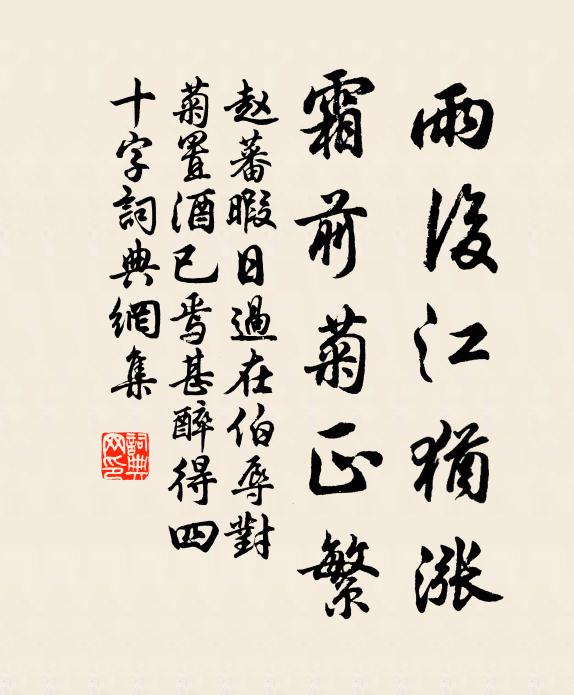 雨後江猶漲
霜前菊正繁
赵蕃暇日過在伯辱對
菊置酒已焉甚醉得四
十字詞典網集
詞典
网印